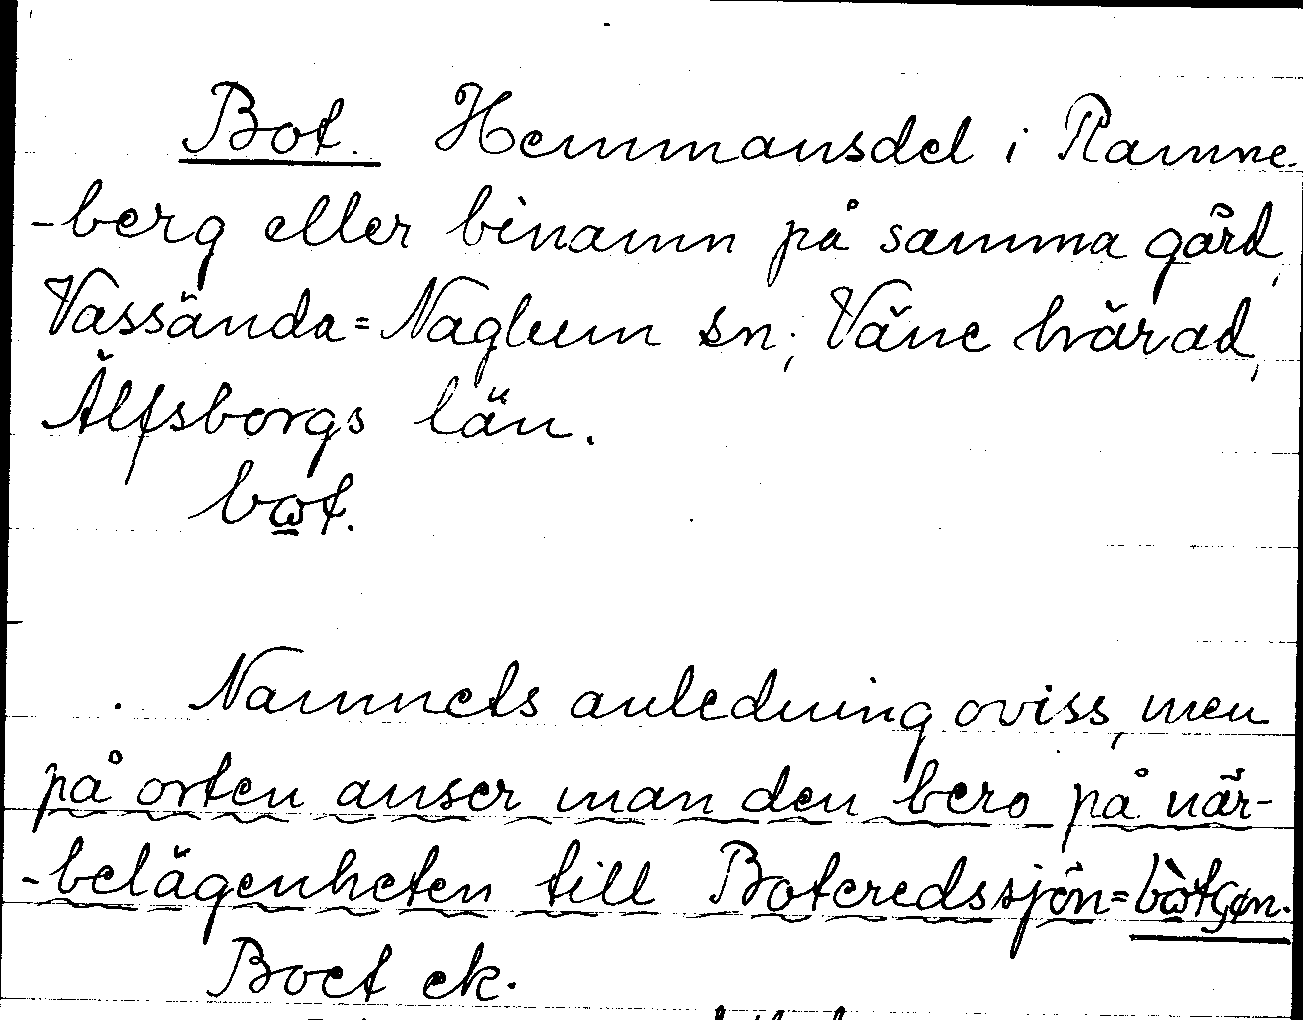 Bot. Hemmansdel i Ramne-
-berg eller binamn på samma gård,
Vassända=Naglum sn; Väne härad,
Älfsborgs län.
bɷt.
Namnets anledning oviss, men
på orten anser man den bero på när-
-belägenheten till Boteredssjön=bɷ̀tʂøn.
Boet ek.